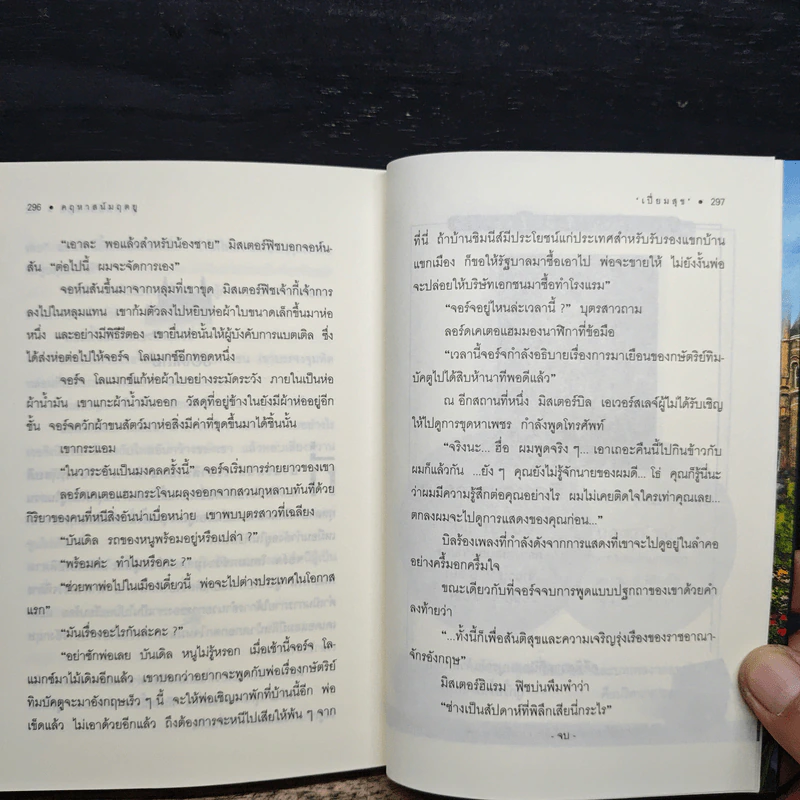 296 • คฤหาสน์มฤตยู
“เอาละ พอแล้วสำหรับน้องชาย” มิสเตอร์ฟิชบอกจอห์น-
สัน “ต่อไปนี้ ผมจะจัดการเอง”
จอห์นสันขึ้นมาจากหลุมที่เขาขุด มิสเตอร์ฟิชเจ้ากี้เจ้าการ
ลงไปในหลุมแทน เขาก้มตัวลงไปหยิบห่อผ้าใบขนาดเล็กขึ้นมาห่อ
หนึ่ง และอย่างมีพิธีรีตอง เขายื่นห่อนั้นให้ผู้บังคับการแบตเติล ซึ่ง
ได้ส่งห่อต่อไปให้จอร์จ โลแมกซ์อีกทอดหนึ่ง
จอร์จ โลแมกซ์แก้ห่อผ้าใบอย่างระมัดระวัง ภายในเป็นห่อ
ผ้าน้ำมัน เขาแกะผ้าน้ำมันออก วัสดุที่อยู่ข้างในยังมีผ้าห่ออยู่อีก
ชั้น จอร์จควักผ้าขนสัตว์มาห่อสิ่งมีค่าที่ขุดขึ้นมาได้ชิ้นนั้น
เขากระแอม
“ในวาระอันเป็นมงคลครั้งนี้” จอร์จเริ่มการร่ายยาวของเขา
ลอร์ดเคเตอแฮมกระโจนผลุงออกจากสวนกุหลาบทันทีด้วย
กิริยาของคนที่หนีสิ่งอันน่าเบื่อหน่าย เขาพบบุตรสาวที่เฉลียง
“บันเดิล รถของหนูพร้อมอยู่หรือเปล่า ?”
“พร้อมค่ะ ทำไมหรือคะ ?”
“ช่วยพาพ่อไปในเมืองเดี๋ยวนี้ พ่อจะไปต่างประเทศในโอกาส
แรก”
“มันเรื่องอะไรกันล่ะคะ ?”
“อย่าซักพ่อเลย บันเดิล หนูไม่รู้หรอก เมื่อเช้านี้จอร์จ โล-
แมกซ์มาไม้เดิมอีกแล้ว เขาบอกว่าอยากจะพูดกับพ่อเรื่องกษัตริย์
ทิมบัคตูจะมาอังกฤษเร็ว ๆ นี้ จะให้พ่อเชิญมาพักที่บ้านนี้อีก พ่อ
เข็ดแล้ว ไม่เอาด้วยอีกแล้ว ถึงต้องการจะหนีไปเสียให้พ้น ๆ จาก
‘เปี่ยมสุข’ • 297
ที่นี่ ถ้าบ้านชิมนีส์มีประโยชน์แก่ประเทศสำหรับรับรองแขกบ้าน
แขกเมือง ก็ขอให้รัฐบาลมาซื้อเอาไป พ่อจะขายให้ ไม่ยังงั้นพ่อ
จะปล่อยให้บริษัทเอกชนมาซื้อทำโรงแรม”
“จอร์จอยู่ไหนล่ะเวลานี้ ?” บุตรสาวถาม
ลอร์ดเคเตอแฮมมองนาฬิกาที่ข้อมือ
“เวลานี้จอร์จกำลังอธิบายเรื่องการมาเยือนของกษัตริย์ทิม-
บัคตูไปได้สิบห้านาทีพอดีแล้ว”
ณ อีกสถานที่หนึ่ง มิสเตอร์บิล เอเวอร์สเลจ์ผู้ไม่ได้รับเชิญ
ให้ไปดูการขุดหาเพชร กำลังพูดโทรศัพท์
“จริงนะ... ฮื่อ ผมพูดจริง ๆ... เอาเถอะคืนนี้ไปกินข้าวกับ
ผมก็แล้วกัน ...ยัง ๆ คุณยังไม่รู้จักนายของผมดี... โธ่ คุณก็รู้นี่นะ
ว่าผมมีความรู้สึกต่อคุณอย่างไร ผมไม่เคยติดใจใครเท่าคุณเลย...
ตกลงผมจะไปดูการแสดงของคุณก่อน...”
บิลร้องเพลงที่กำลังดังจากการแสดงที่เขาจะไปดูอยู่ในลำคอ
อย่างครึ้มอกครึ้มใจ
ขณะเดียวกับที่จอร์จจบการพูดแบบปฐกถาของเขาด้วยคำ
ลงท้ายว่า
“...ทั้งนี้ก็เพื่อสันติสุขและความเจริญรุ่งเรืองของราชอาณา-
จักรอังกฤษ”
มิสเตอร์ฮิแรม ฟิชบ่นพึมพำว่า
“ช่างเป็นสัปดาห์ที่พิลึกเสียนี่กระไร”
- จบ -